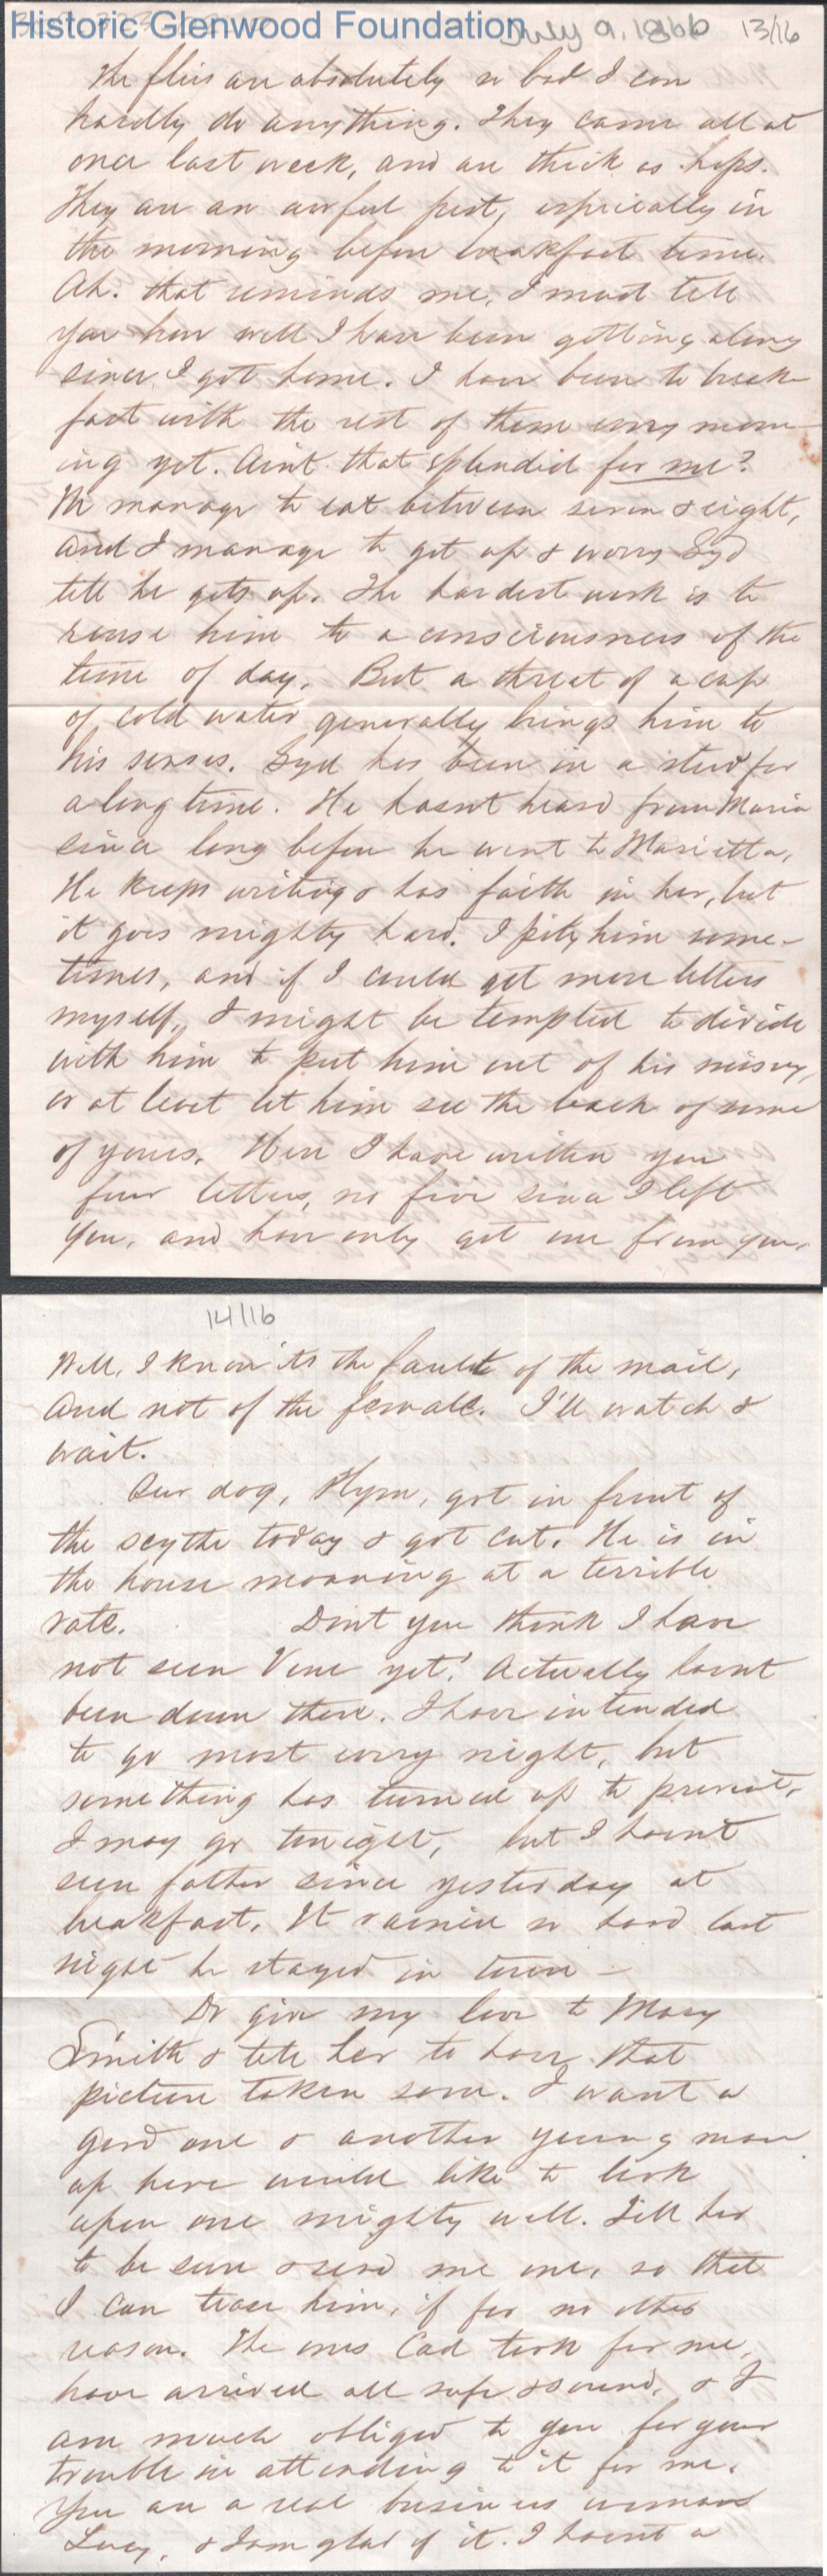 Historic Glenwood Foundation
July 9, 1866 13/16
The flies are absolutely so bad I can
hardly do anything. They came all at
once last week, and are thick as hops.
They are an awful pest, especially in
the morning before breakfast time.
Ah. that reminds me, I must tell
you how well I have been getting along
since I got home. I have been to break-
fast with the rest of them every morn-
ing yet. Aint that splendid for me?
We manage to eat between seven & eight,
and I manage to get up & worry Syd
till he gets up. The hardest work is to
rouse him to a consciousness of the
time of day. But a threat of a cup
of cold water generally brings him to
his senses. Syd has been in a stew for
a long time. He hasnt heard from Maria
since long before he went to Marietta,
He keeps writing & has faith in her, but
it goes mighty hard. I pity him some-
times, and if I could get more letters
myself, I might be tempted to divide
with him to put him out of his misery,
or at least let him see the back of some
of yours. Here I have written you
four letters, no five since I left
you, and have only got one from you.
14/16
Well, I know its the fault of the mail,
and not of the female. I'll watch &
wait.
Our dog, got in front of
the scythe today & got cut. He is in
the house moaning at a terrible
rate. Dont you think I have
not seen Vene yet! Actually havnt
been down there. I have intended
to go most every night, but
something has turned up to prevent.
I may go tonight, but I havn't
seen father since yesterday at
breakfast. It rained so hard last
night he stayed in town –
Do give my love to Mary
Smith & tell her to have that
picture taken soon. I want a
good one & another young man
up here would like to look
upon one mighty well. Tell her
to be sure & send me one, so that
I can tease him, if for no other
reason. The ones Cad took for me,
have arrived all safe & sound, & I
am much obliged to you for your
trouble in attending to it for me.
You are a real business woman
Lucy, & I am glad of it. I havnt a